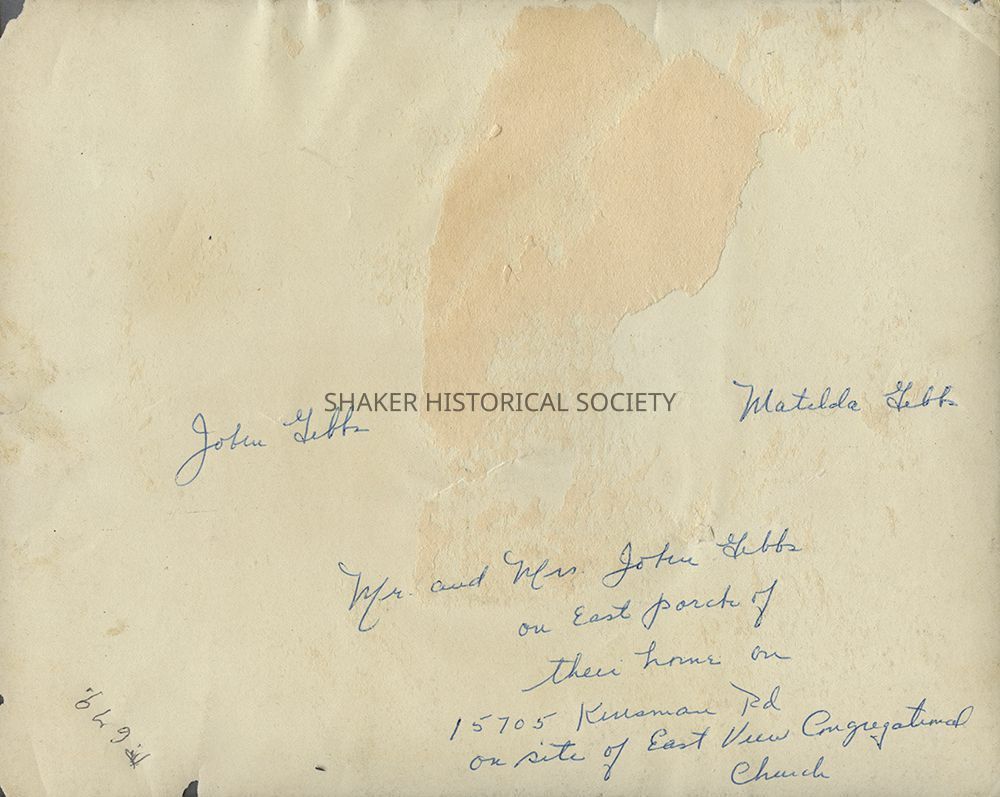 SHAKER HISTORICAL SOCIETY
John Gibbs
Matilda Gibbs
Mr. and Mrs. John Gibbs
on East porch of
their home on
15705 Kinsman Rd
on site of East View Congregational
Church